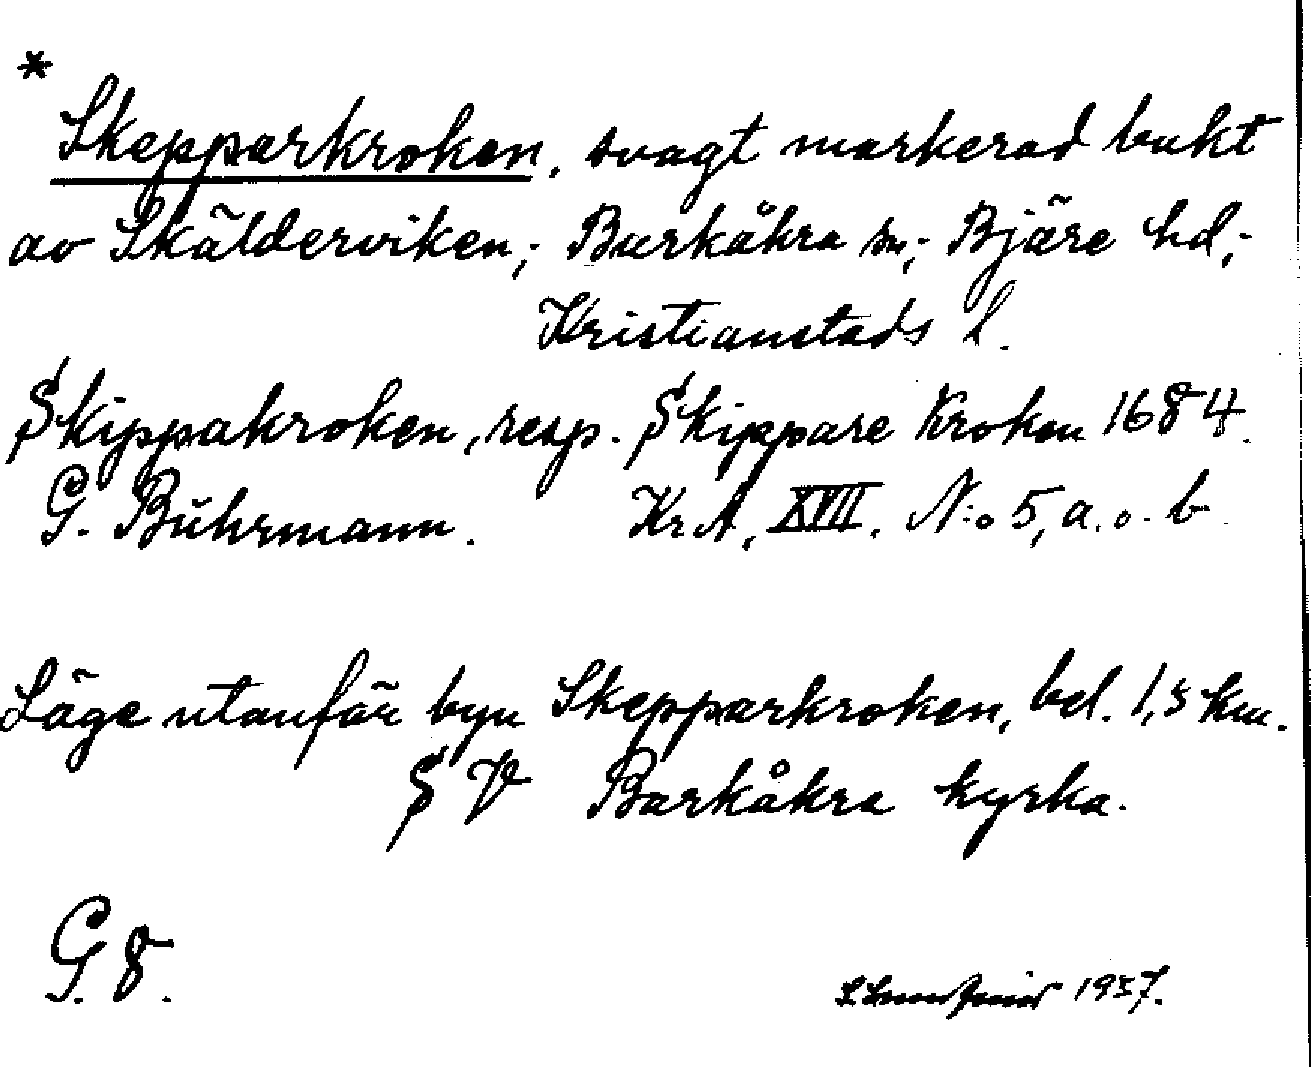 *
Skepparkroken, svagt markerad bukt
av Skälderviken; Barkåkra sn; Bjäre hd;
Kristianstads l.
Skippakroken, resp. Skippare Kroken 1684.
G. Buhrmann. KrA, XVII. N:o 5, a. o. b
Läge utanför byn Skepparkroken, bel. 1,5 km.
SV Barkåkra kyrka.
G. 8.
1937.